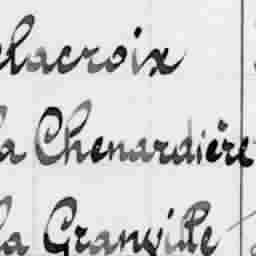 elacroix
la Chenardière
la Granville